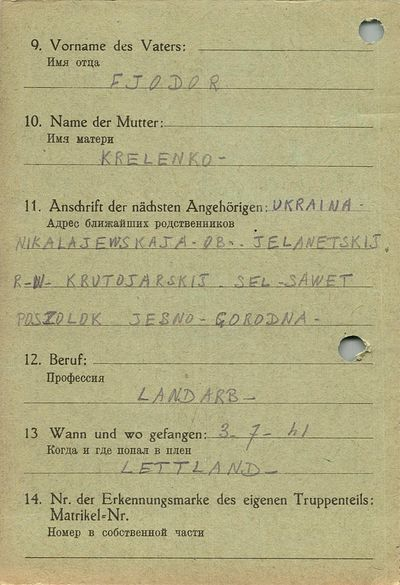 9. Vorname des Vaters:
Имя отца
FJODOR
10. Name der Mutter:
Имя матери
KRELENKO-
11. Anschrift der nächsten Angehörigen: UKRAINA-
Адрес ближайших родственников
NIKALAJEWSKAJA-OB-- JELANETSKIJ.
R-N- KRUTOJARSKIJ. SEL-SAWET
POSZOLOK JESNO-GORODNA-
12. Beruf:
Профессия
LANDARB-
13 Wann und wo gefangen: 3-7-41
Когда и где попал в плен
LETTLAND-
14. Nr. der Erkennungsmarke des eigenen Truppenteils:
Matrikel=Nr.
Номер в собственной части